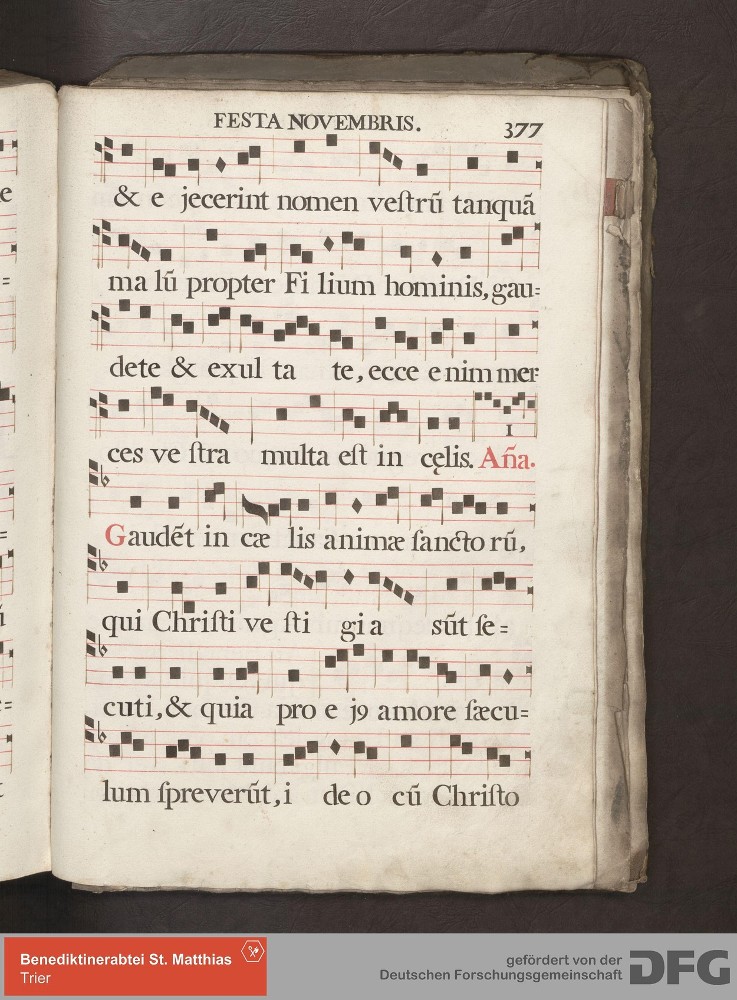 FESTA NOVEMBRIS. 377
& e jecerint nomen veſtrũ tanquã
ma lũ propter Fi lium hominis, gau=
dete & exul ta te, ecce enim mer-
1
ces ve ſtra multa eſt in cęlis. Añа.
Gaudẽt in cæ lis animæ ſancto rũ,
qui Chriſti ve ſti gi a sũt ſe=
cuti, & quia pro e jꝯ amore ſæcu=
lum ſpreverũt, i de o cũ Chriſto
Benediktinerabtei St. Matthias
Trier
gefördert von der
Deutschen Forschungsgemeinschaft
DFG